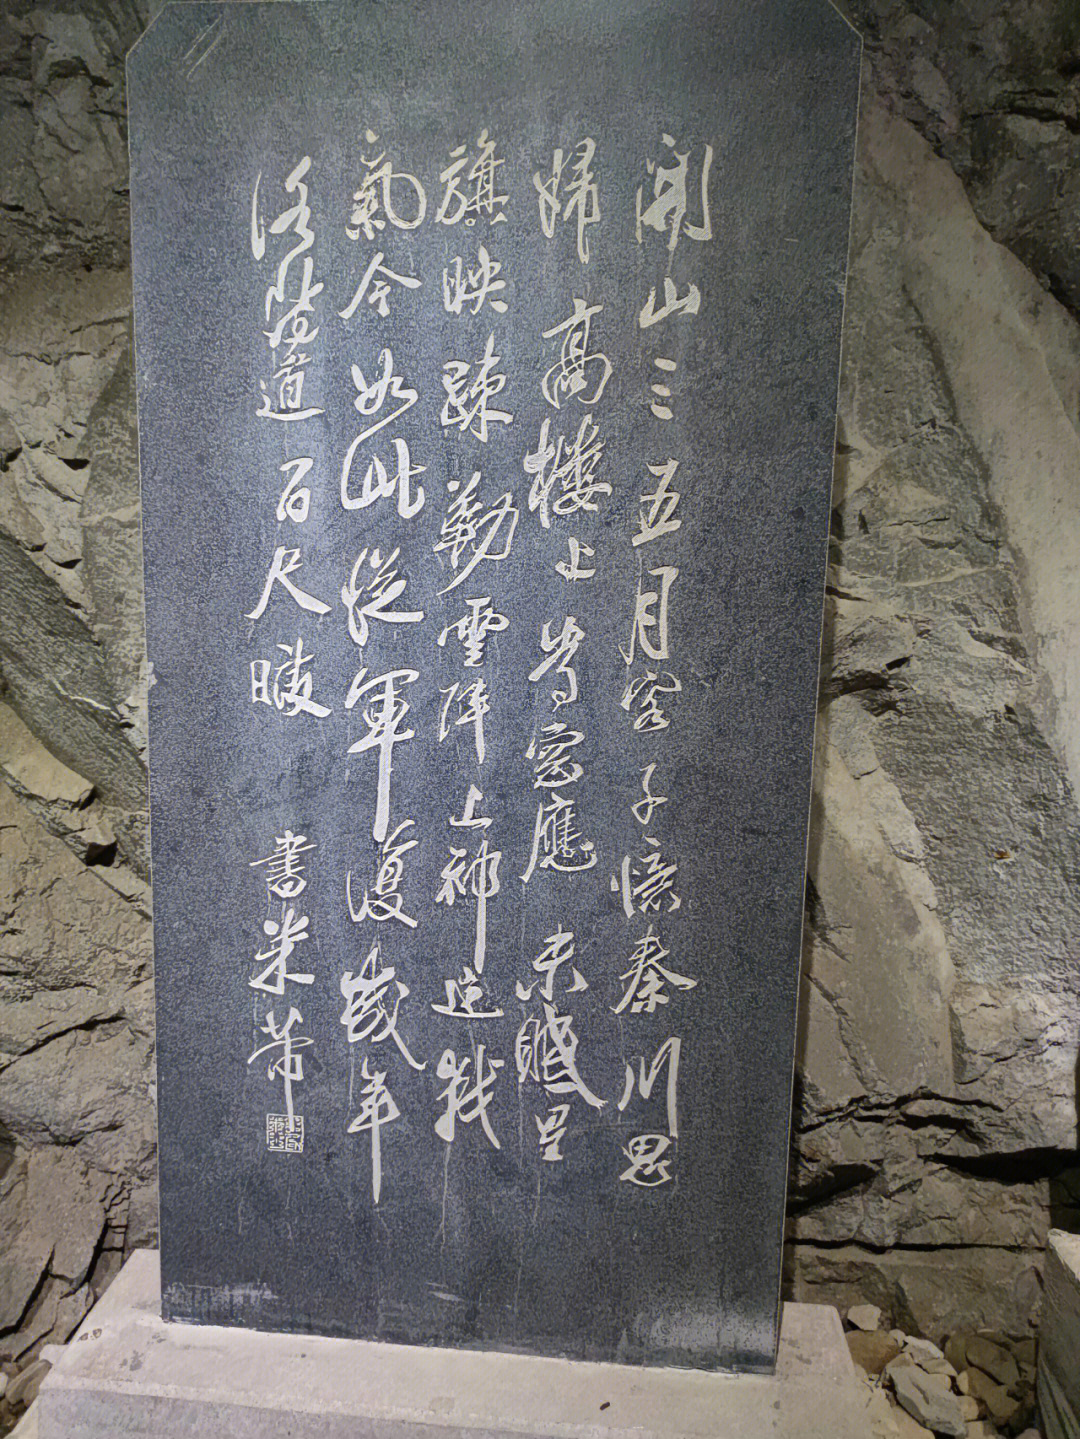 關山三五月客子憶秦川思
婦高樓上當窗應未眠星
旗映踈勒雲陣上祁連戰
氣今如此從軍復幾年
洛陽道百尺 書米芾